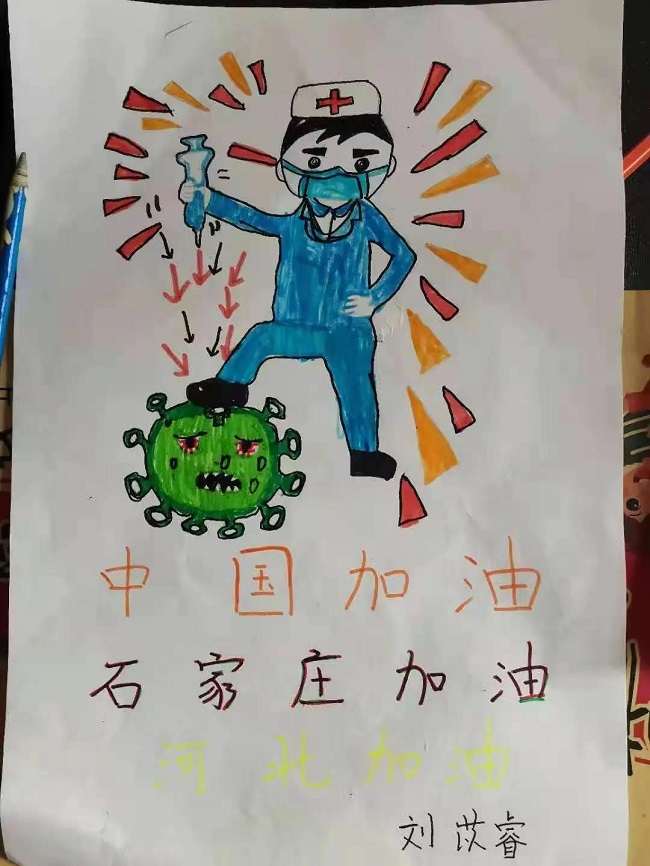 中国加油
石家庄加油
河北加油
刘苡睿